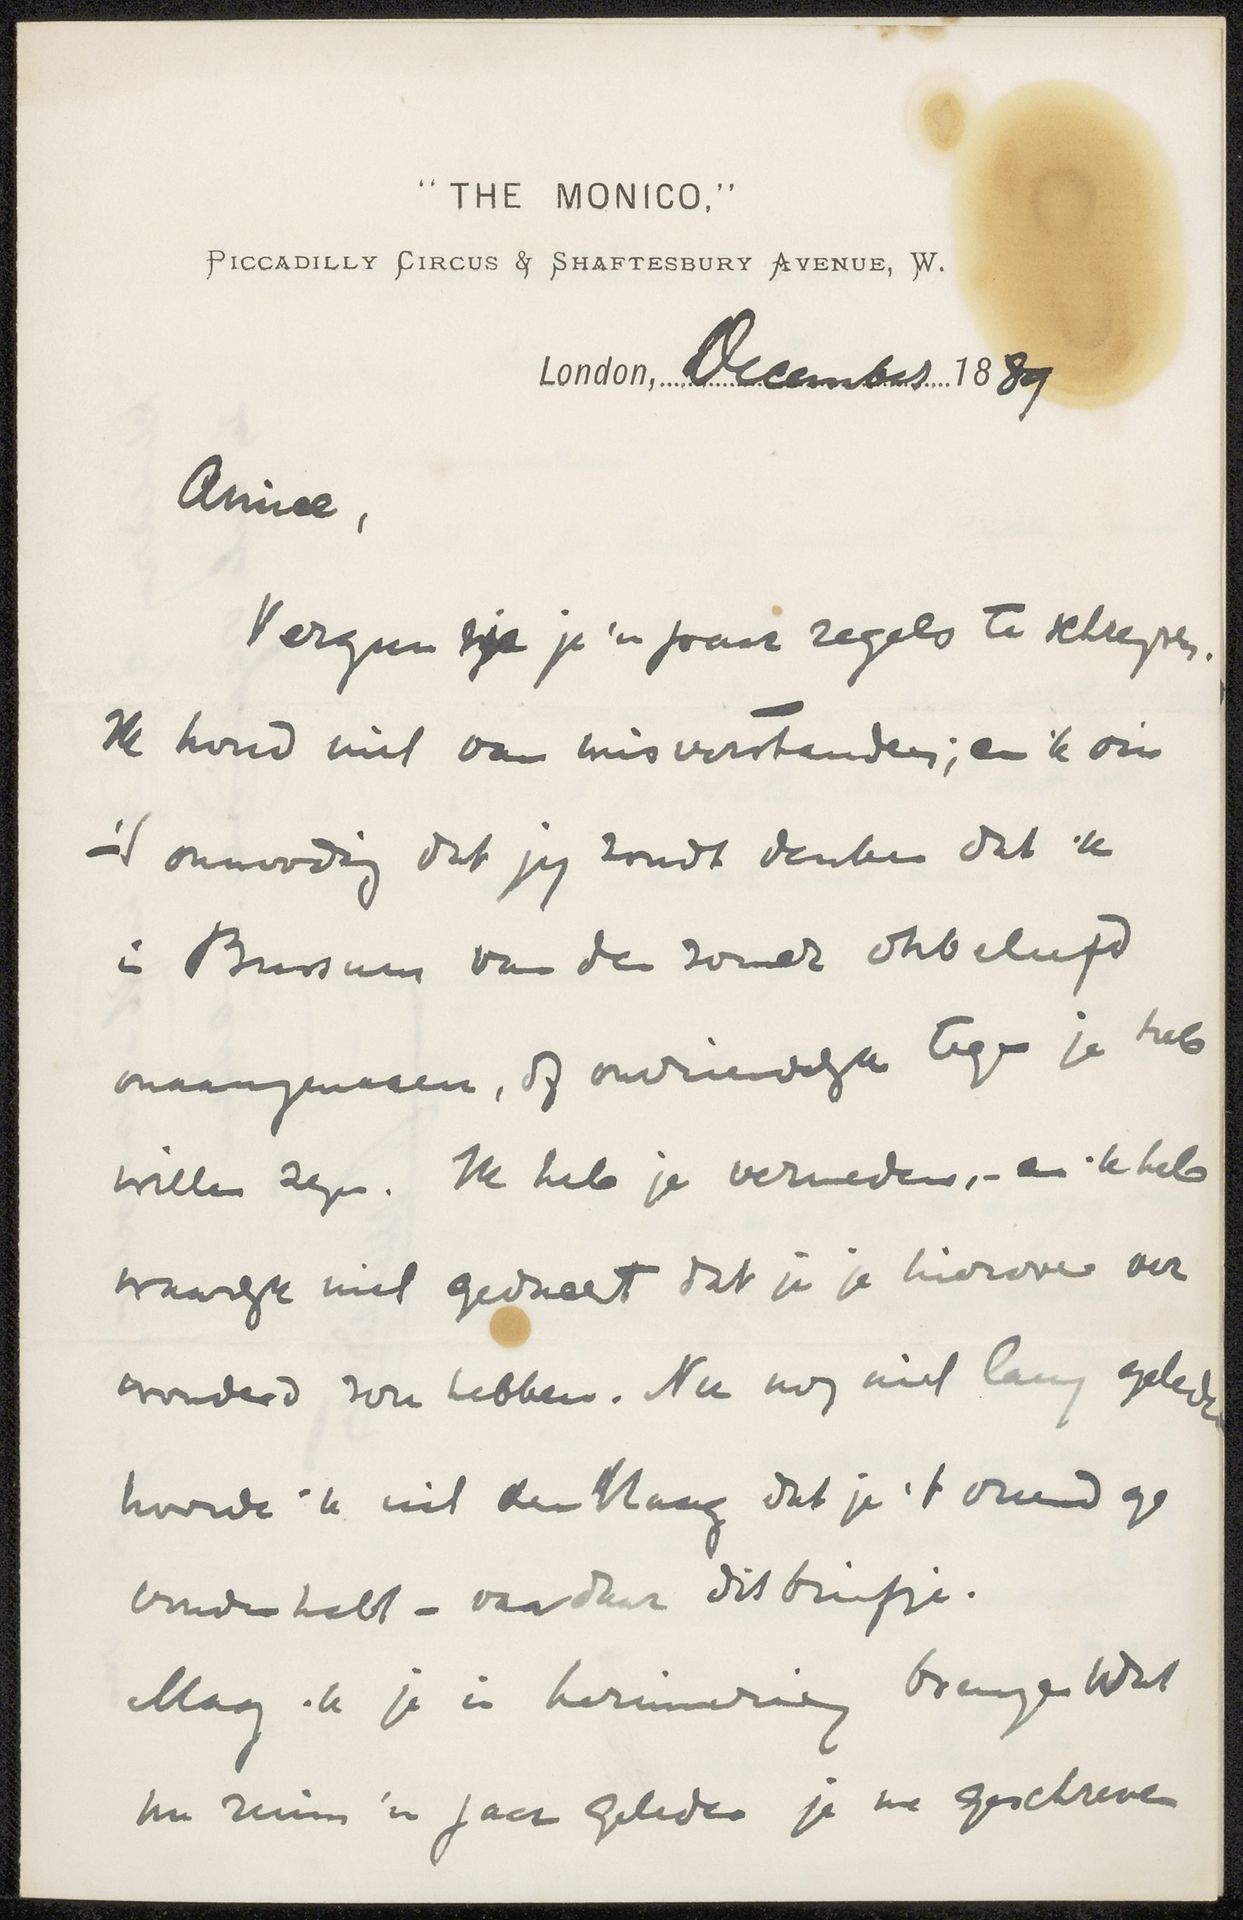 “THE MONICO,”
PICCADILLY CIRCUS & SHAFTESBURY AVENUE, W.
London, December 1889
Aimee,
Vergun je 'n paar regels te schrijven.
Ik houd niet van misverstanden; en ik vin
't onnoodig dat jij zoudt denken dat ik
in Bussum van den zomer onbeleefd
onaangenaam, of onvriendelijk tegen je heb
willen zijn. Ik heb je vermeden, - en ik heb
waarlijk niet gedacht dat je je hierover ver
wonderd zou hebben. Nu nog niet lang geleden
hoorde ik uit den Haag dat je 't vreemd ge
vonden hebt - vandaar dit briefje.
Mag ik je in herinnering brengen wat
nu ruim 'n jaar geleden je me geschreven